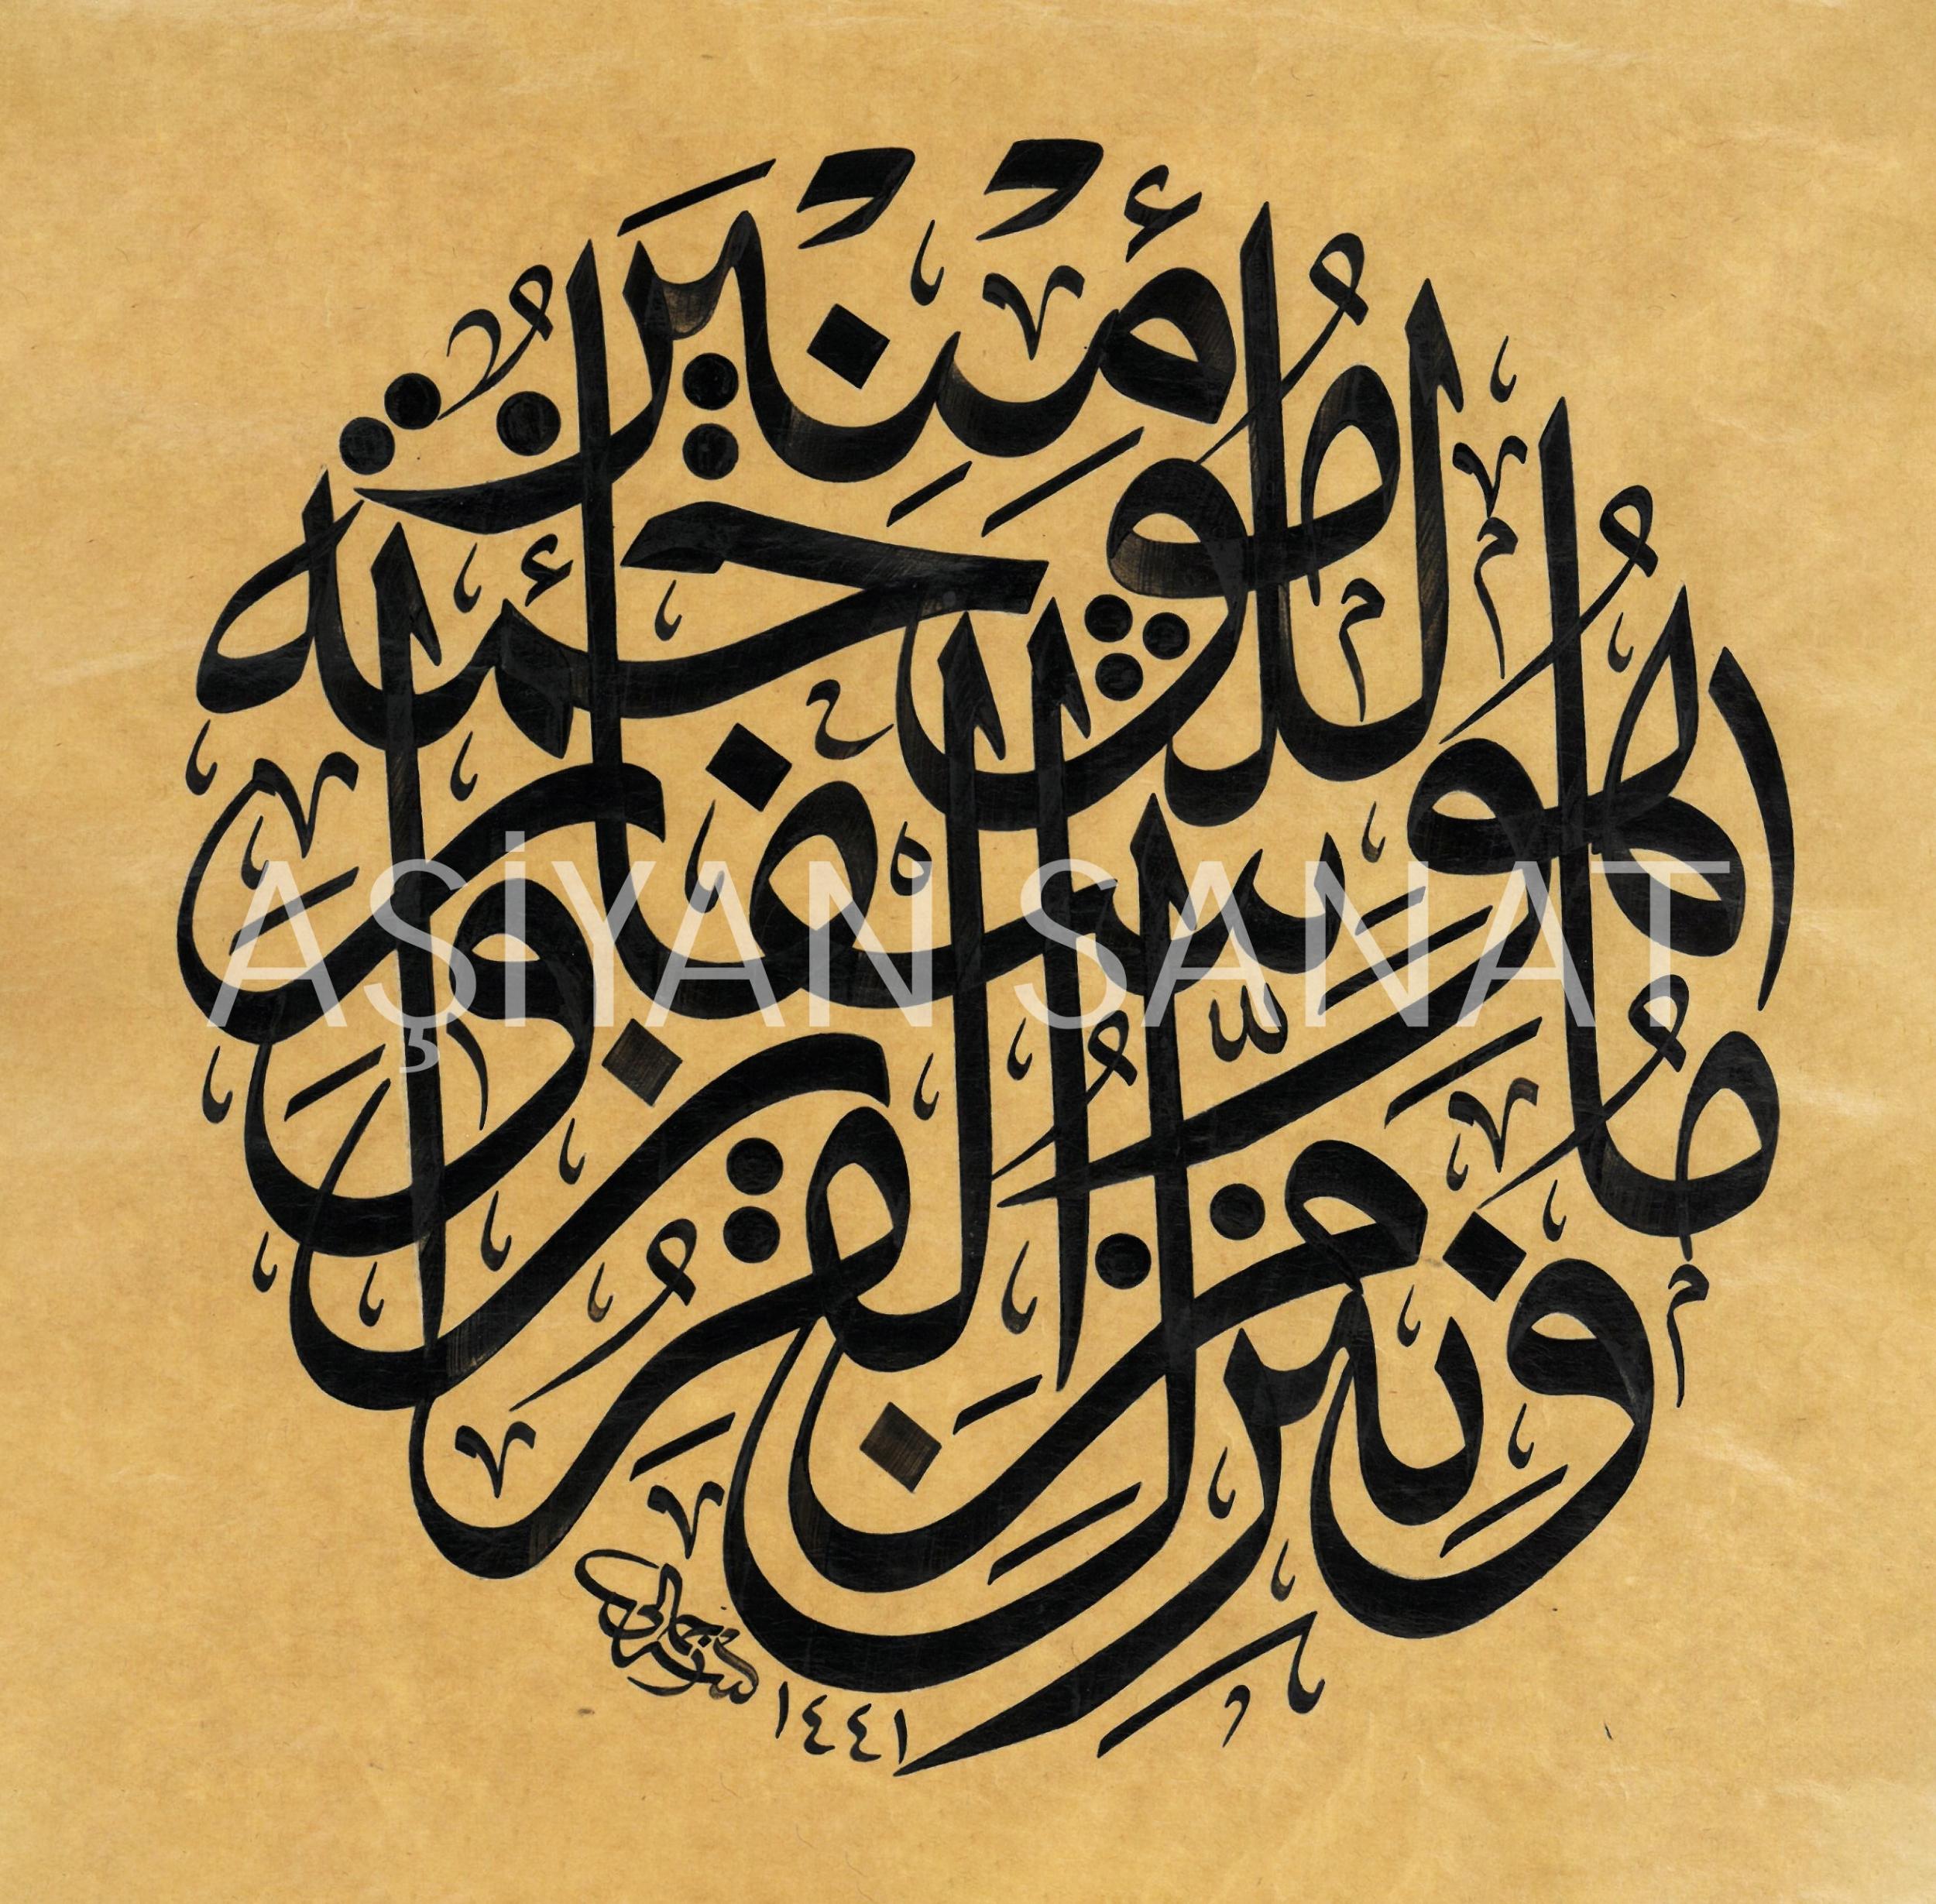 وَنُنَزِّلُ مِنَ الْقُرْآنِ مَا هُوَ شِفَاءٌ وَرَحْمَةٌ لِلْمُؤْمِنِينَ
١٤٤١
AŞİYAN SANAT